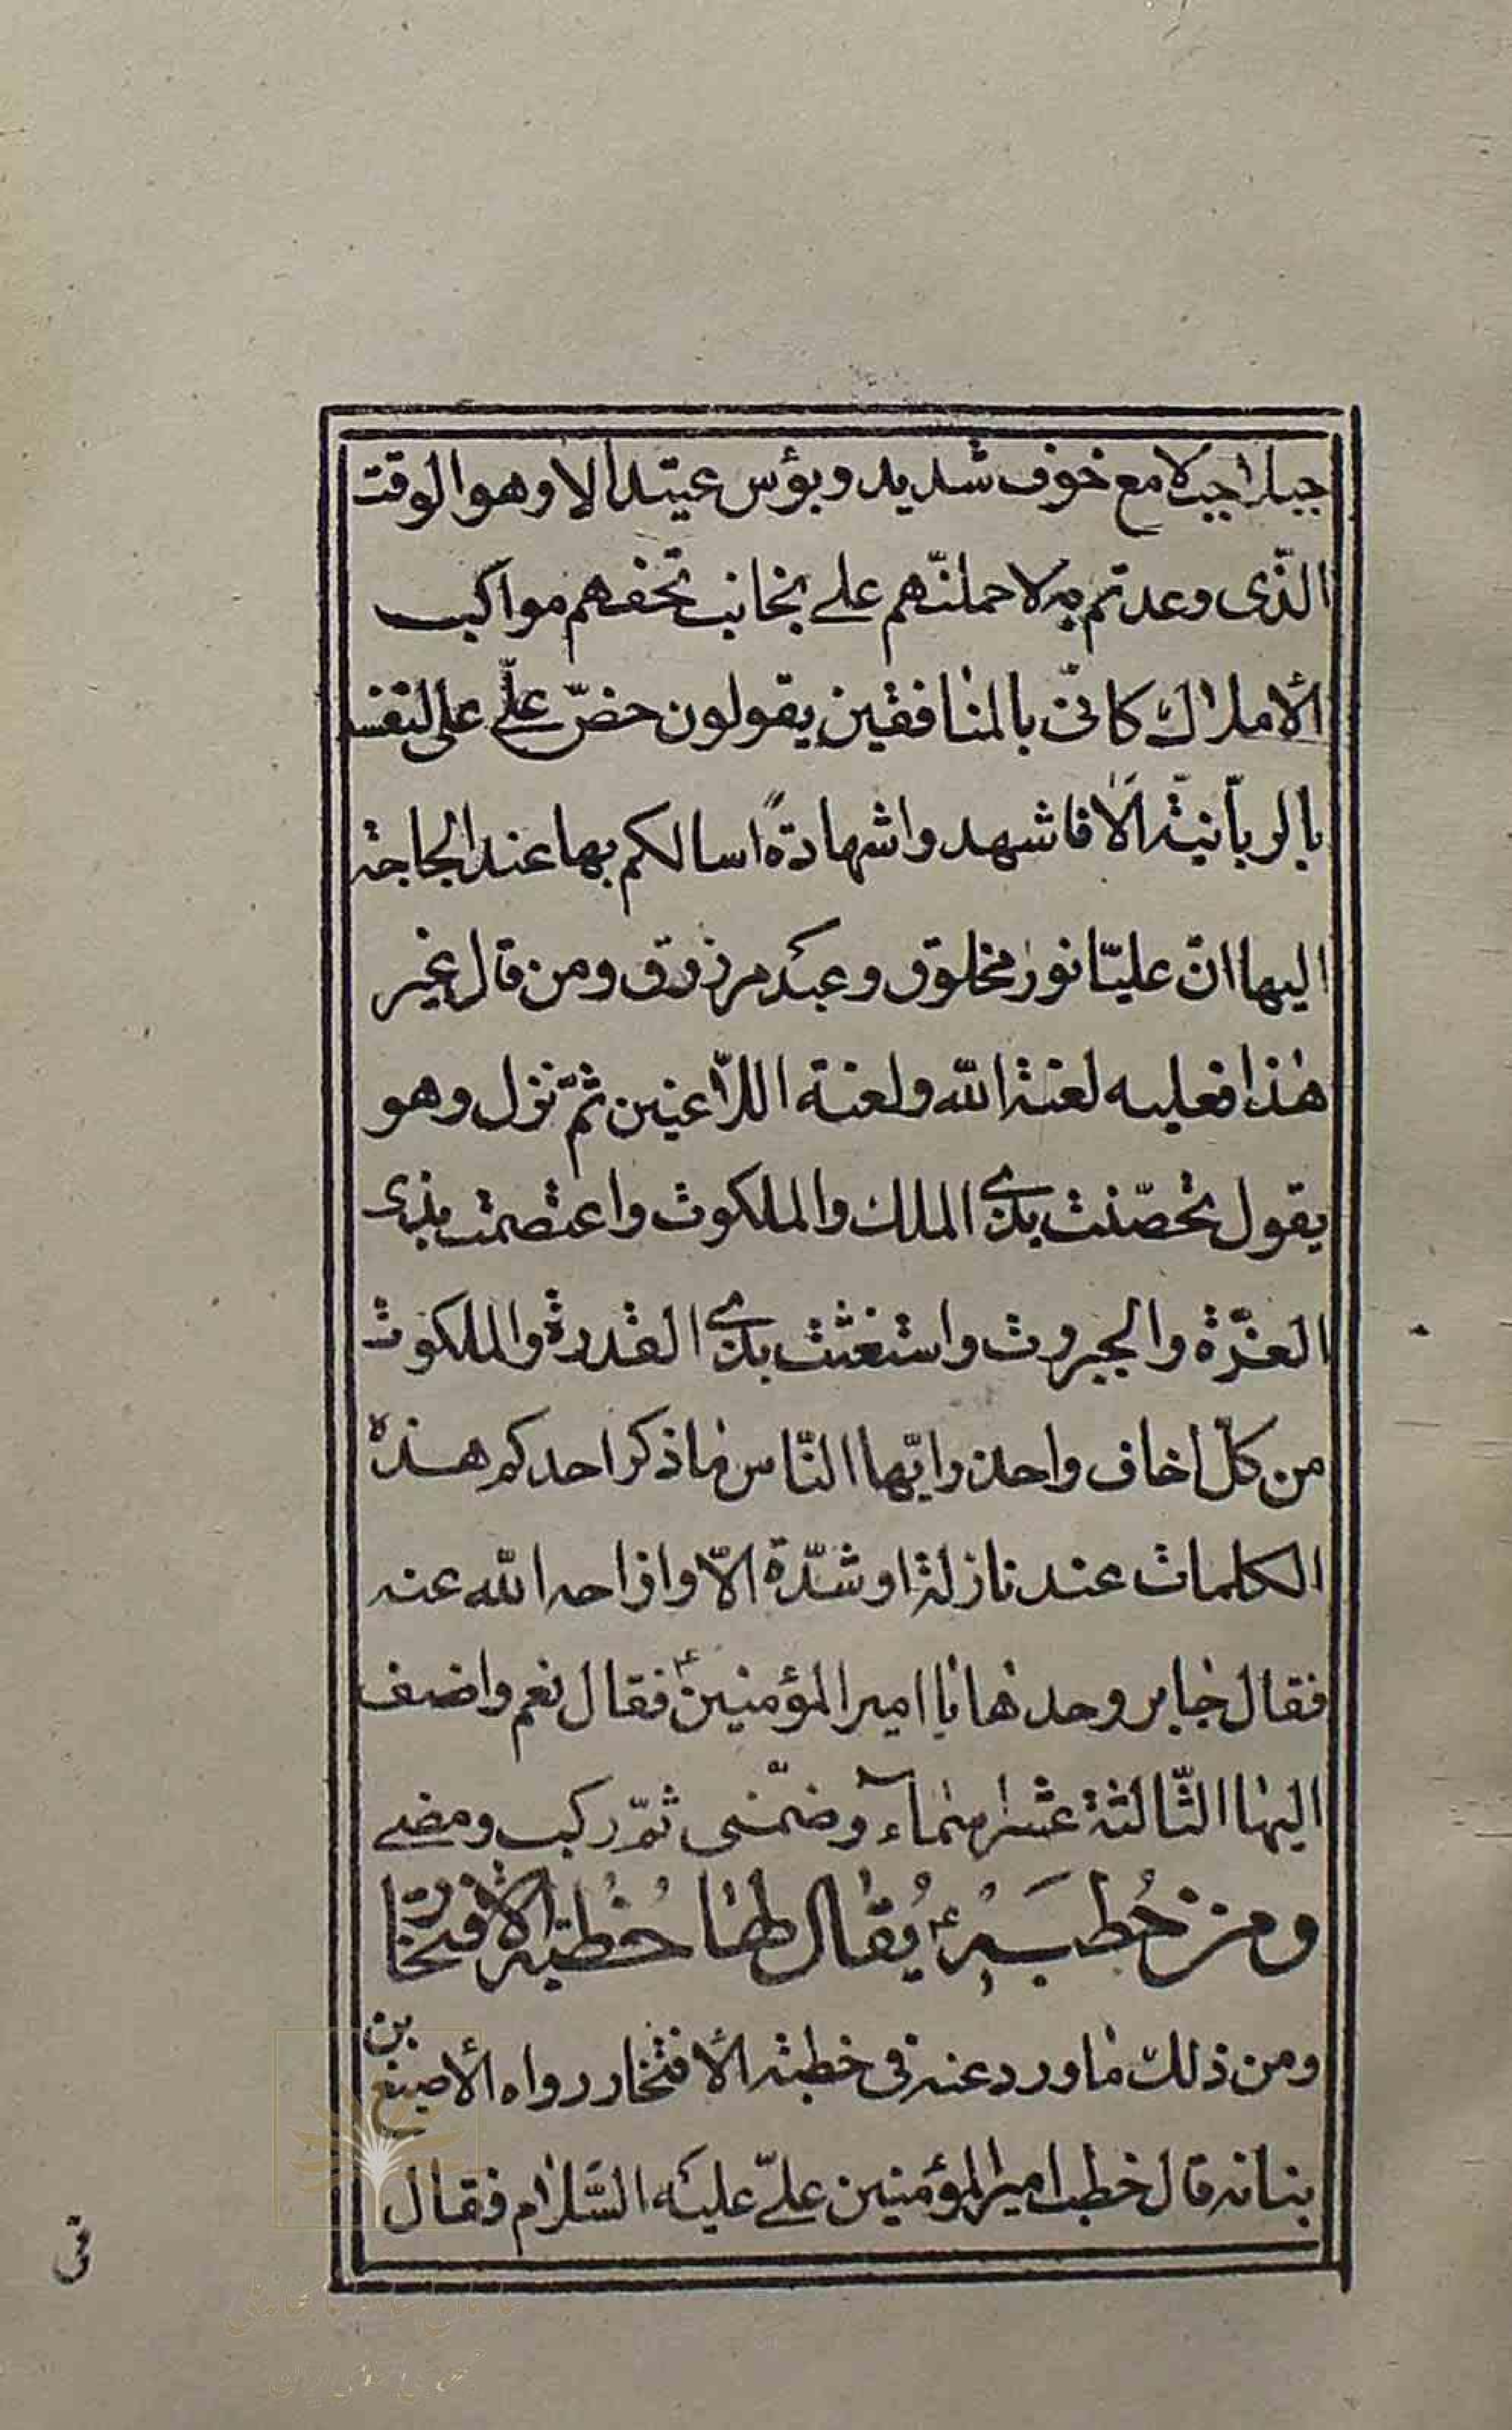 جبلا جبلا مع خوف شديد وبؤس عتيد الا وهو الوقت
الّذى وعدتم به لاحملنّهم على نجائب تحفهم مواكب
الأملاك كانّى بالمنافقين يقولون نصّ علىّ على نفسه
بالربّانيّة ألا فاشهدوا شهادةً اسالكم بها عند الحاجة
اليها انّ عليّا نور مخلوق وعبد مرزوق ومن قال غير
هذا فعليه لعنة الله ولعنة اللّاعنين ثمّ نزل وهو
يقول تحصّنت بذى الملك والملكوت واعتصمت بذى
العزّة والجبروت واستغثت بذى القدرة والملكوت
من كلّ اخاف واحذر ايّها النّاس ما ذكر احدكم هذه
الكلمات عند نازلة او شدّة الّا وازاحه الله عنه
فقال جابر وحدها يا امير المؤمنين ع فقال نعم واضف
اليها الثّالثة عشر اسماء وضمّنى ثمّ ركب ومضى
ومن خُطبِهِ ع يُقال لها خُطبة الأفتخار
ومن ذلك ما ورد عنه فى خطبة الأفتخار رواه الأصبغ بن
نباته قال خطب امير المؤمنين علىّ عليه السّلام فقال